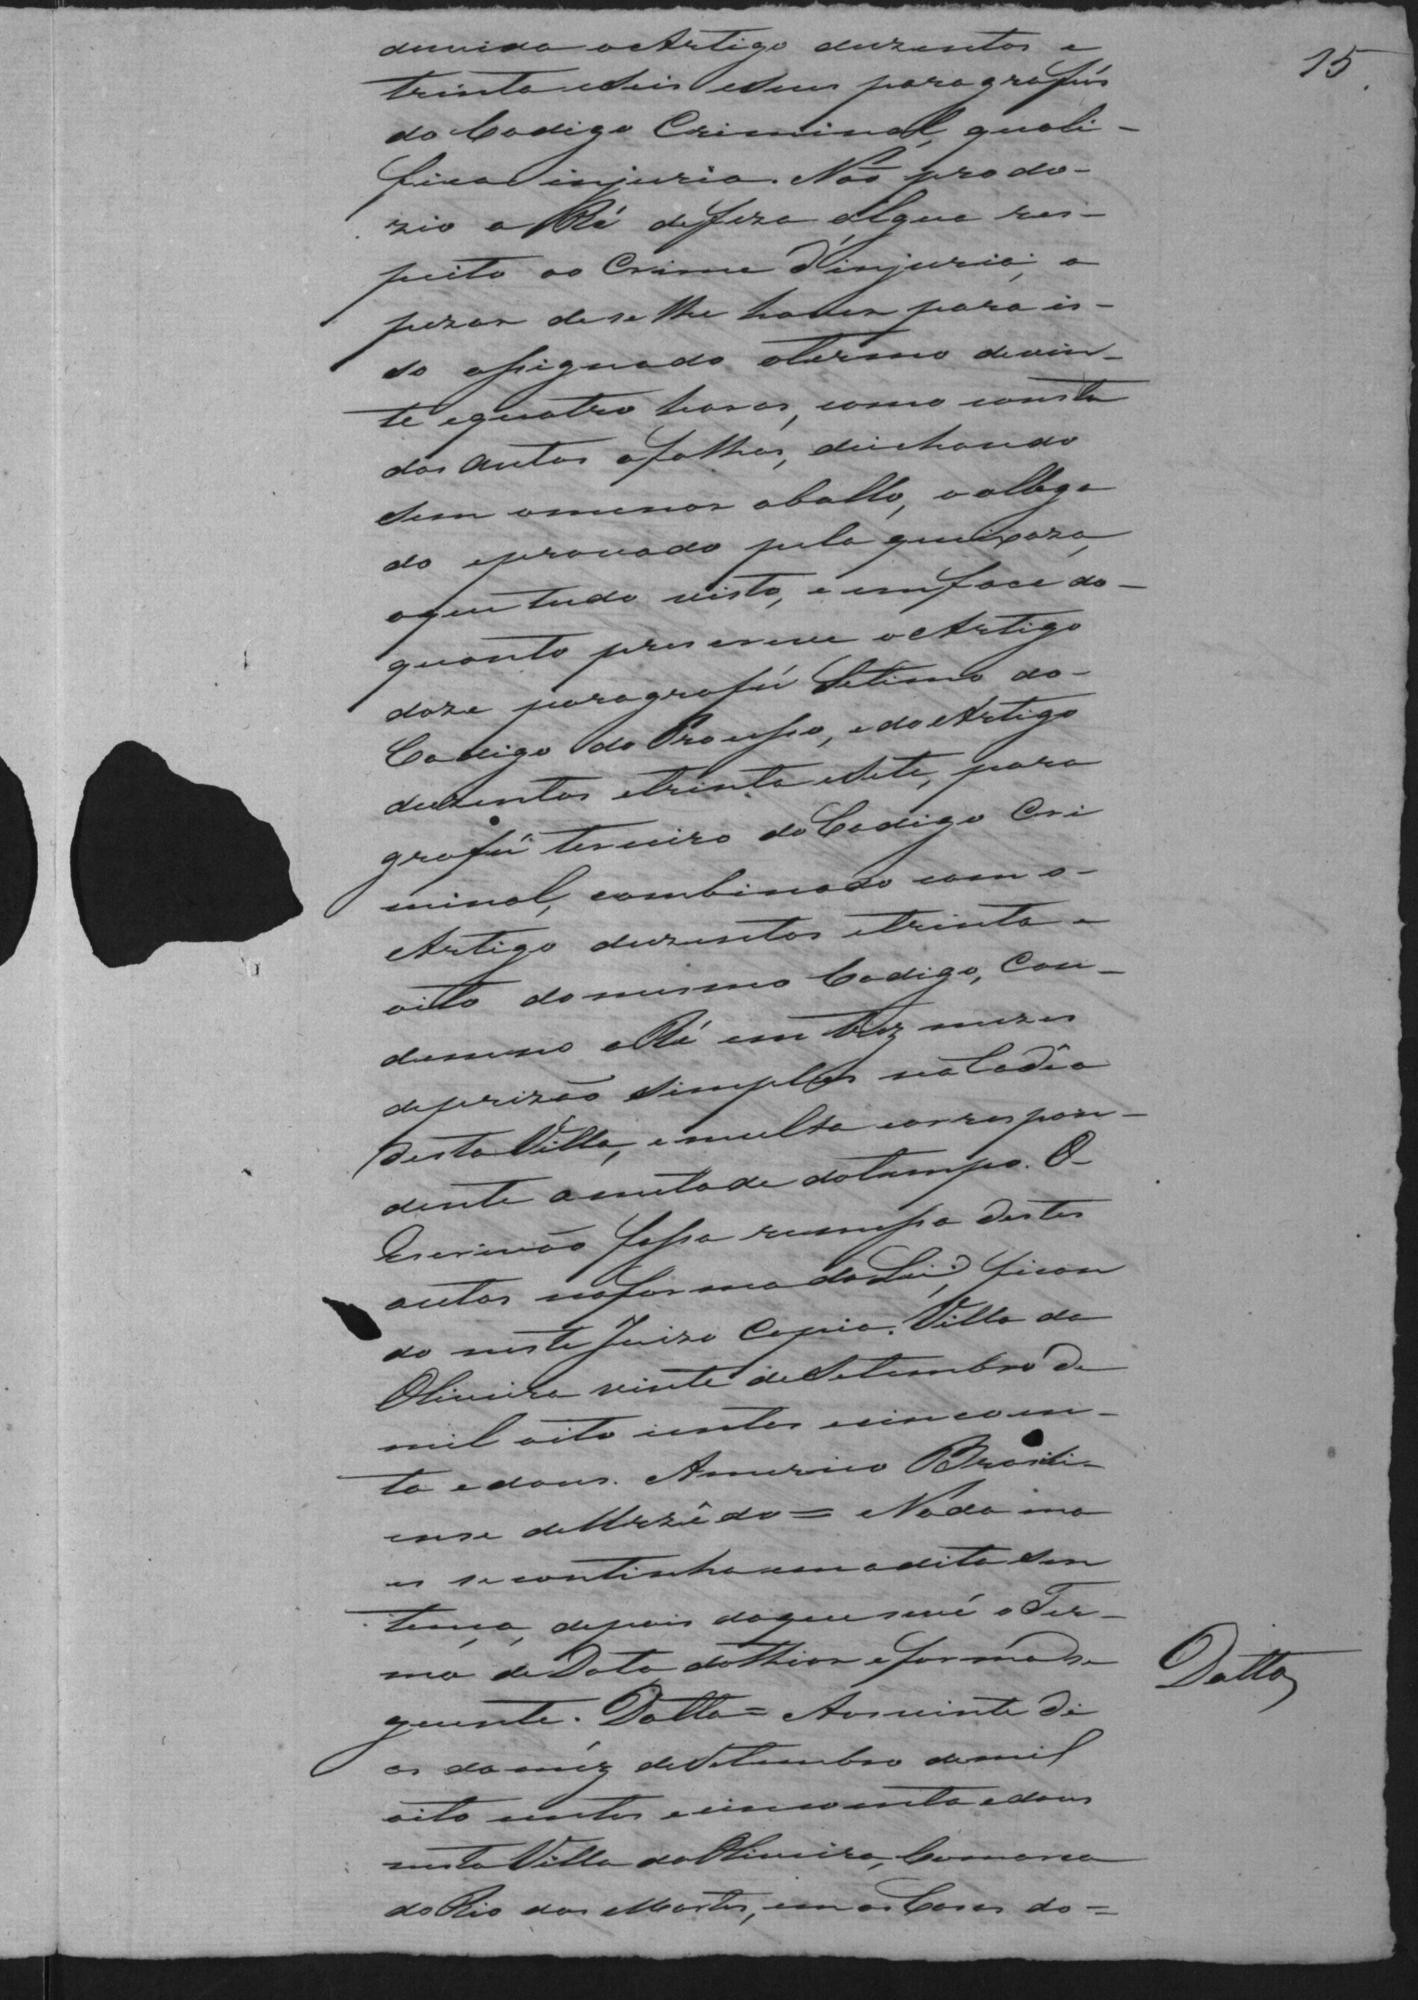 15
duvida o Artigo duzentos e
trinta e seis e seus paragrafús
do Codigo Criminal, quali-
fica injuria. Não prodo-
zio a Ré defeza algua res-
peito ao Crime d'injuria, a
pezar de se lhe haver para is-
so assignado o termo de vin-
te e quatro horas, como consta
dos autos a folhas, deichando
sem o menor aballo, o allega
do e provado pela queixoza,
o que tudo visto, e em face do-
quanto prescreve o Artigo
doze paragrafú Setimo do-
Codigo do Processo, e do Artigo
duzentos e trinta e sete, para
grafú terceiro do Codigo Cri
minal, combinado com o-
Artigo duzentos e trinta e
oito do mesmo Codigo, Con-
demno a Ré em trez mezes
de prizão simples na Cadêa
desta Villa, e multa correspon-
dente a metade do tempo. O-
Escrivão fassa remessa destes
autos na forma da Lei, fican
do neste Juizo Copia. Villa da
Oliveira vinte de Setembro de
mil oito centos e cincoen-
ta e dous. Americo Brasili-
ense de Urzêdo = Nada ma
es se continha em a dita sen
tença, depois do que se vé o Ter-
mo de Data do thior e forma se
guente. Datta = Aos vinte di
as do méz de Setembro de mil
oito centos e cincoenta e dous
nesta Villa da Oliveira, Comarca
do Rio das Mortes, em as Casas do=
Datta